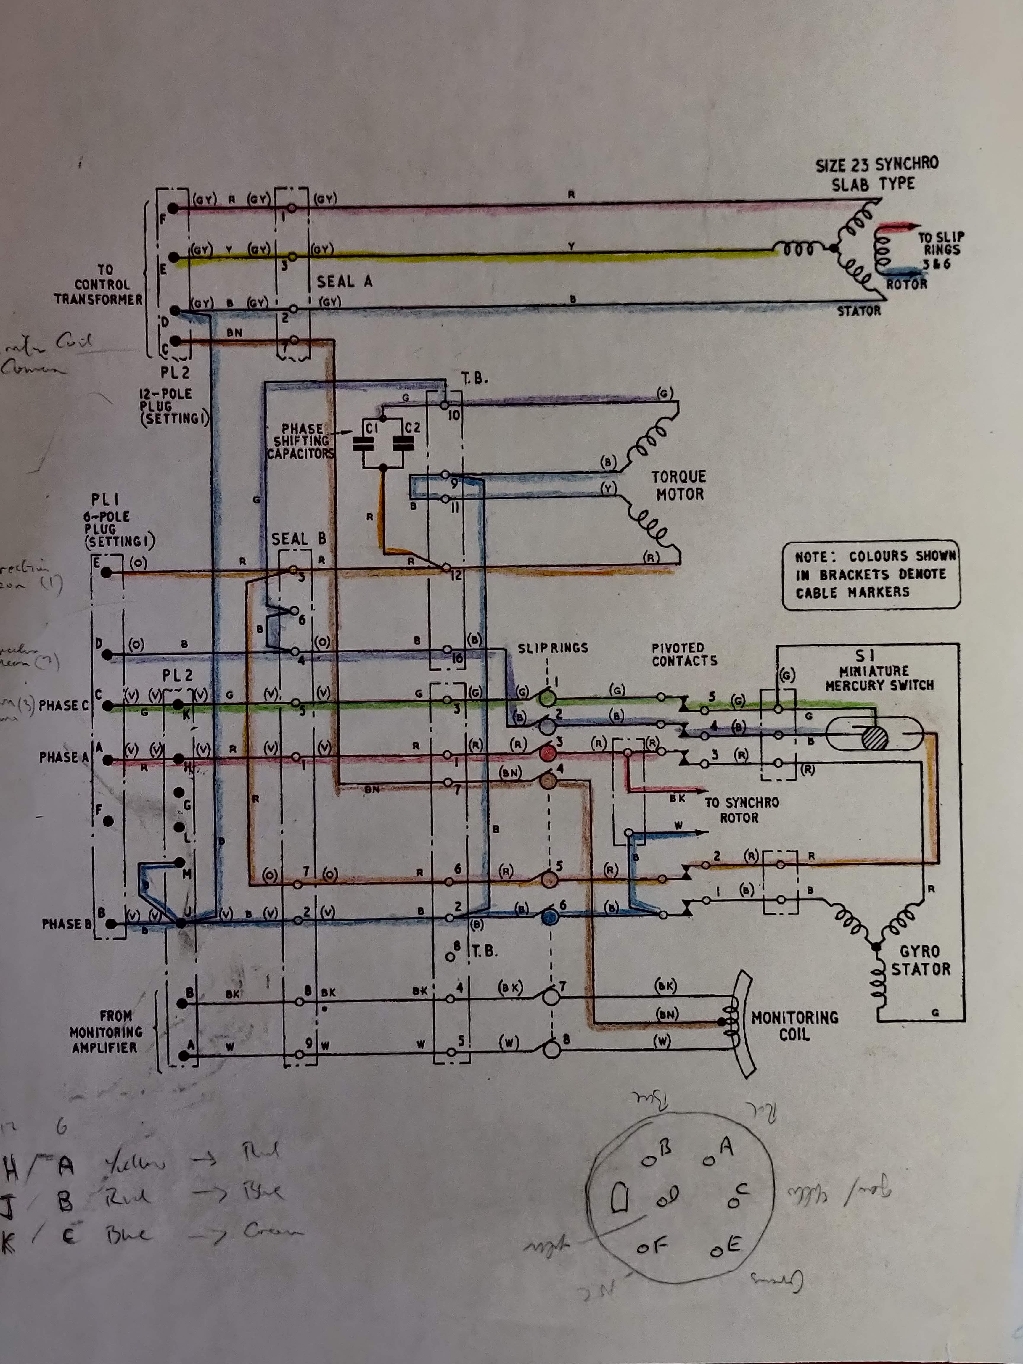 SIZE 23 SYNCHRO
SLAB TYPE
F (GY) R (GY) 1 (GY) R
E (GY) Y (GY) 3 (GY) Y
TO SLIP
RINGS
3 & 6
ROTOR
TO
CONTROL
TRANSFORMER
SEAL A
D (GY) B (GY) 2 (GY) B
STATOR
C BN 7
Coil
PL2
12-POLE
PLUG
(SETTING 1)
T.B.
G 10 (G)
PHASE
SHIFTING
CAPACITORS
C1 C2
(B)
9
TORQUE
MOTOR
(Y)
B 11
PL1
6-POLE
PLUG
(SETTING 1)
G
R
SEAL B
E (O) R 3 R R 12 (R)
NOTE: COLOURS SHOWN
IN BRACKETS DENOTE
CABLE MARKERS
6
B
D (O) B 4 (O) B 16 (B)
SLIPRINGS
PIVOTED
CONTACTS
S1
MINIATURE
MERCURY SWITCH
(G)
PL2
PHASE C C (V) (V) (V) G (V) 5 (V) G 3 (G) (G) 1 (G) 5 (G) G
G K
(B) 2 (B) 4 (B) B
PHASE A A (V) (V) (V) R (V) 1 (V) R 1 (R) (R) 3 (R) (R) 3 (R) (R)
R H
BN 7 (BN) 4
G
R
BK
TO SYNCHRO
ROTOR
F
L
W
B
B
M
2 (R) R
7 (O) (O) R 6 (R) 5 (R)
1 (B) B
R
PHASE B B (V) (V) J (V) B (V) 2 (V) B 2 (B) (B) 6 (B)
B
GYRO
STATOR
8 T.B.
B BK 8 BK BK 4 (BK) 7 (BK)
FROM
MONITORING
AMPLIFIER
(BN)
MONITORING
COIL
G
A W 9 W W 5 (W) 8 (W)
6
H / A Yellow → Red
J / B Red → Blue
K / C Blue → Green
B A
D C
F E
NC